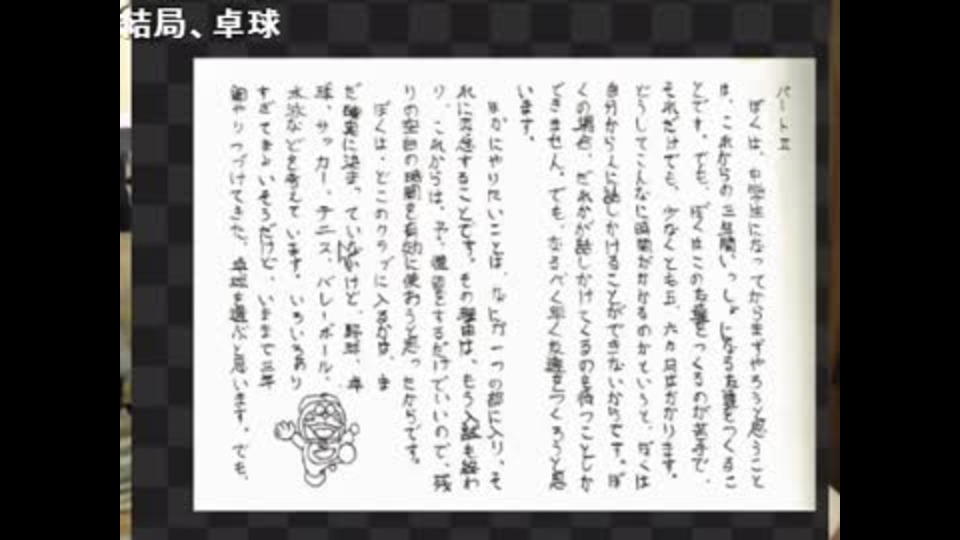 結局、卓球
パートⅡ
ぼくは、中学生になってからまずやろうと思うこと
は、これからの三年間いっしょになる友達をつくるこ
とです。でも、ぼくはこの友達をつくるのが苦手で、
それだけでも、少なくとも五、六ヶ月はかかります。
どうしてこんなに時間がかかるのかというと、ぼくは
自分から人に話しかけることができないからです。ぼ
くの場合、だれかが話しかけてくるのを待つことしか
できません。でも、なるべく早く友達をつくろうと思
います。
ほかにやりたいことは、なにか一つの部に入り、そ
れに熱中することです。その理由は、もう入試も終わ
り、これからは、予、復習をするだけでいいので、残
りの空白の時間を有効に使おうと思ったからです。
ぼくは、どこのクラブに入るかは、ま
だ確実に決まっていないけど、野球、卓
球、サッカー、テニス、バレーボール、
水泳などを考えています。いろいろあり
すぎてまよいそうだけど、いままで三年
間やりつづけてきた、卓球を選ぶと思います。でも、